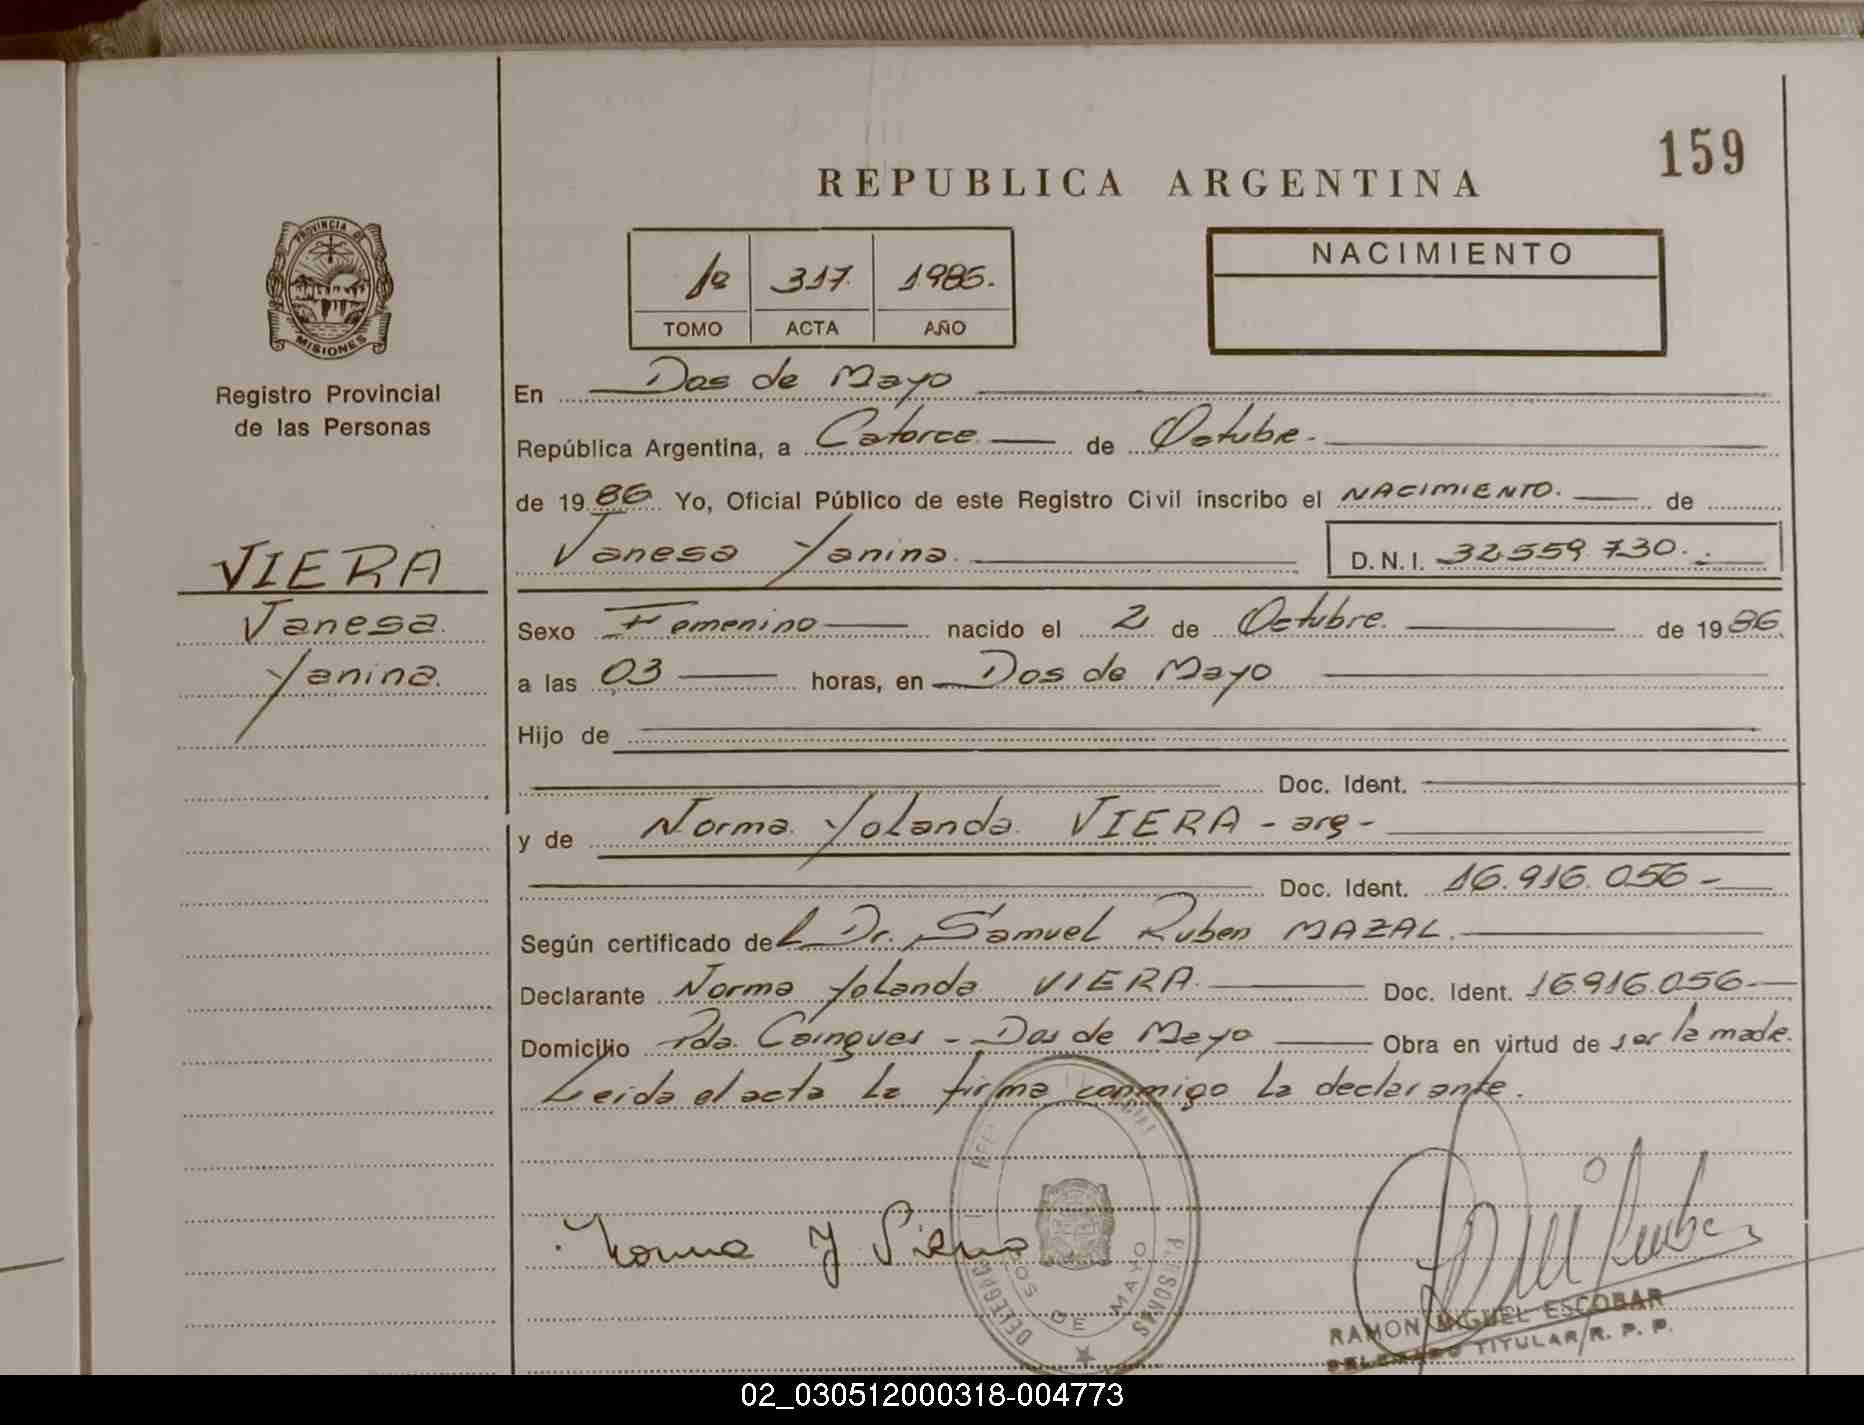 159
REPUBLICA ARGENTINA
PROVINCIA DE
MISIONES
Registro Provincial
de las Personas
VIERA
Vanesa
Yanina.
1º 317. 1986.
TOMO ACTA AÑO
NACIMIENTO
En Dos de Mayo
República Argentina, a Catorce de Octubre.
de 1986 Yo, Oficial Público de este Registro Civil inscribo el NACIMIENTO. de
Vanesa Yanina. D.N.I. 32.559.730.
Sexo Femenino nacido el 2 de Octubre. de 1986.
a las 03 horas, en Dos de Mayo
Hijo de
Doc. Ident.
y de Norma Yolanda VIERA - arg -
Doc. Ident. 16.916.056 -
Según certificado del Dr. Samuel Ruben MAZAL.
Declarante Norma Yolanda VIERA. Doc. Ident. 16.916.056-
Domicilio Pda. Caingues - Dos de Mayo Obra en virtud de ser la madre.
Leida el acta la firma conmigo la declarante.
Norma Y Viera
DOS DE MAYO
PERSONAS
RAMON MIGUEL ESCOBAR
DELEGADO TITULAR R. P. P.
02_030512000318-004773